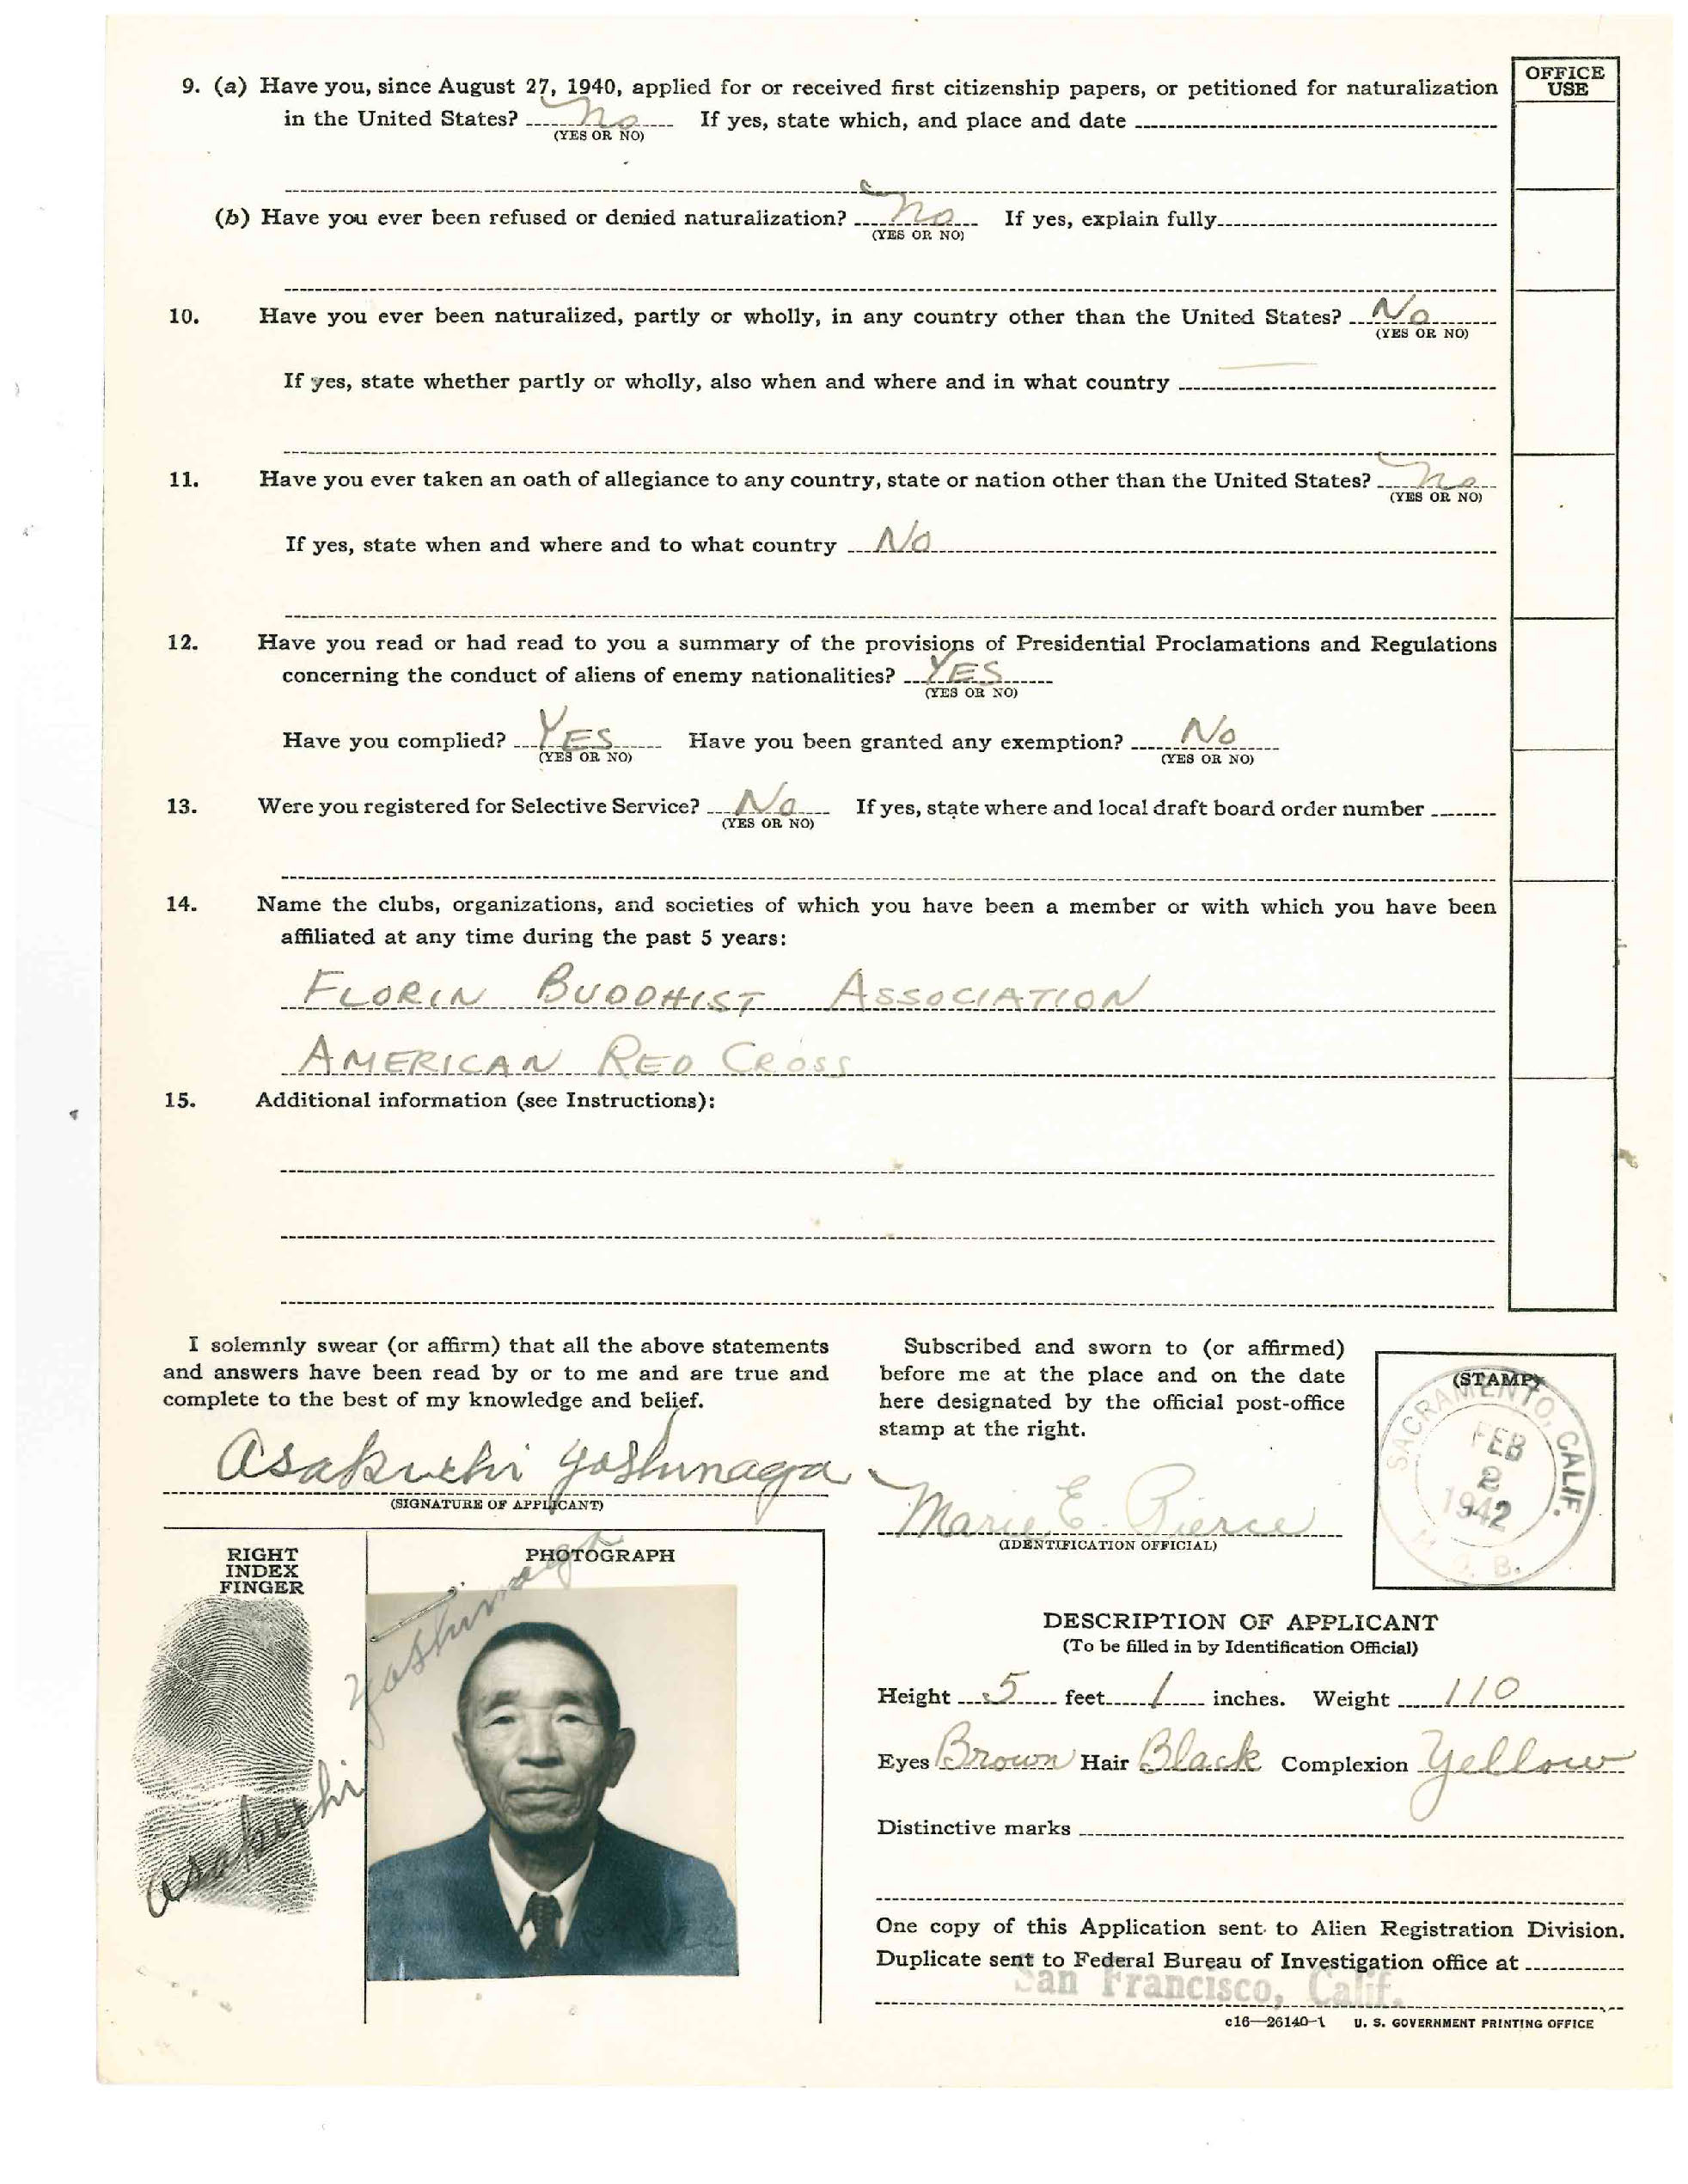 OFFICE
USE
9. (a) Have you, since August 27, 1940, applied for or received first citizenship papers, or petitioned for naturalization
in the United States? no If yes, state which, and place and date
(YES OR NO)
(b) Have you ever been refused or denied naturalization? no If yes, explain fully
(YES OR NO)
10. Have you ever been naturalized, partly or wholly, in any country other than the United States? No
(YES OR NO)
If yes, state whether partly or wholly, also when and where and in what country
11. Have you ever taken an oath of allegiance to any country, state or nation other than the United States? no
(YES OR NO)
If yes, state when and where and to what country No
12. Have you read or had read to you a summary of the provisions of Presidential Proclamations and Regulations
concerning the conduct of aliens of enemy nationalities? YES
(YES OR NO)
Have you complied? YES Have you been granted any exemption? No
(YES OR NO) (YES OR NO)
13. Were you registered for Selective Service? No If yes, state where and local draft board order number
(YES OR NO)
14. Name the clubs, organizations, and societies of which you have been a member or with which you have been
affiliated at any time during the past 5 years:
FLORIN BUDDHIST ASSOCIATION
AMERICAN RED CROSS
15. Additional information (see Instructions):
I solemnly swear (or affirm) that all the above statements
and answers have been read by or to me and are true and
complete to the best of my knowledge and belief.
Asakuchi Yoshinaga
(SIGNATURE OF APPLICANT)
Subscribed and sworn to (or affirmed)
before me at the place and on the date
here designated by the official post-office
stamp at the right.
Marie E. Pierce
(IDENTIFICATION OFFICIAL)
(STAMP)
SACRAMENTO, CALIF.
FEB
2
1942
M. O. B.
RIGHT
INDEX
FINGER
PHOTOGRAPH
Asakuchi Yoshinaga
DESCRIPTION OF APPLICANT
(To be filled in by Identification Official)
Height 5 feet 1 inches. Weight 110
Eyes Brown Hair Black Complexion Yellow
Distinctive marks
One copy of this Application sent to Alien Registration Division.
Duplicate sent to Federal Bureau of Investigation office at
San Francisco, Calif.
c16—26140-1 U. S. GOVERNMENT PRINTING OFFICE